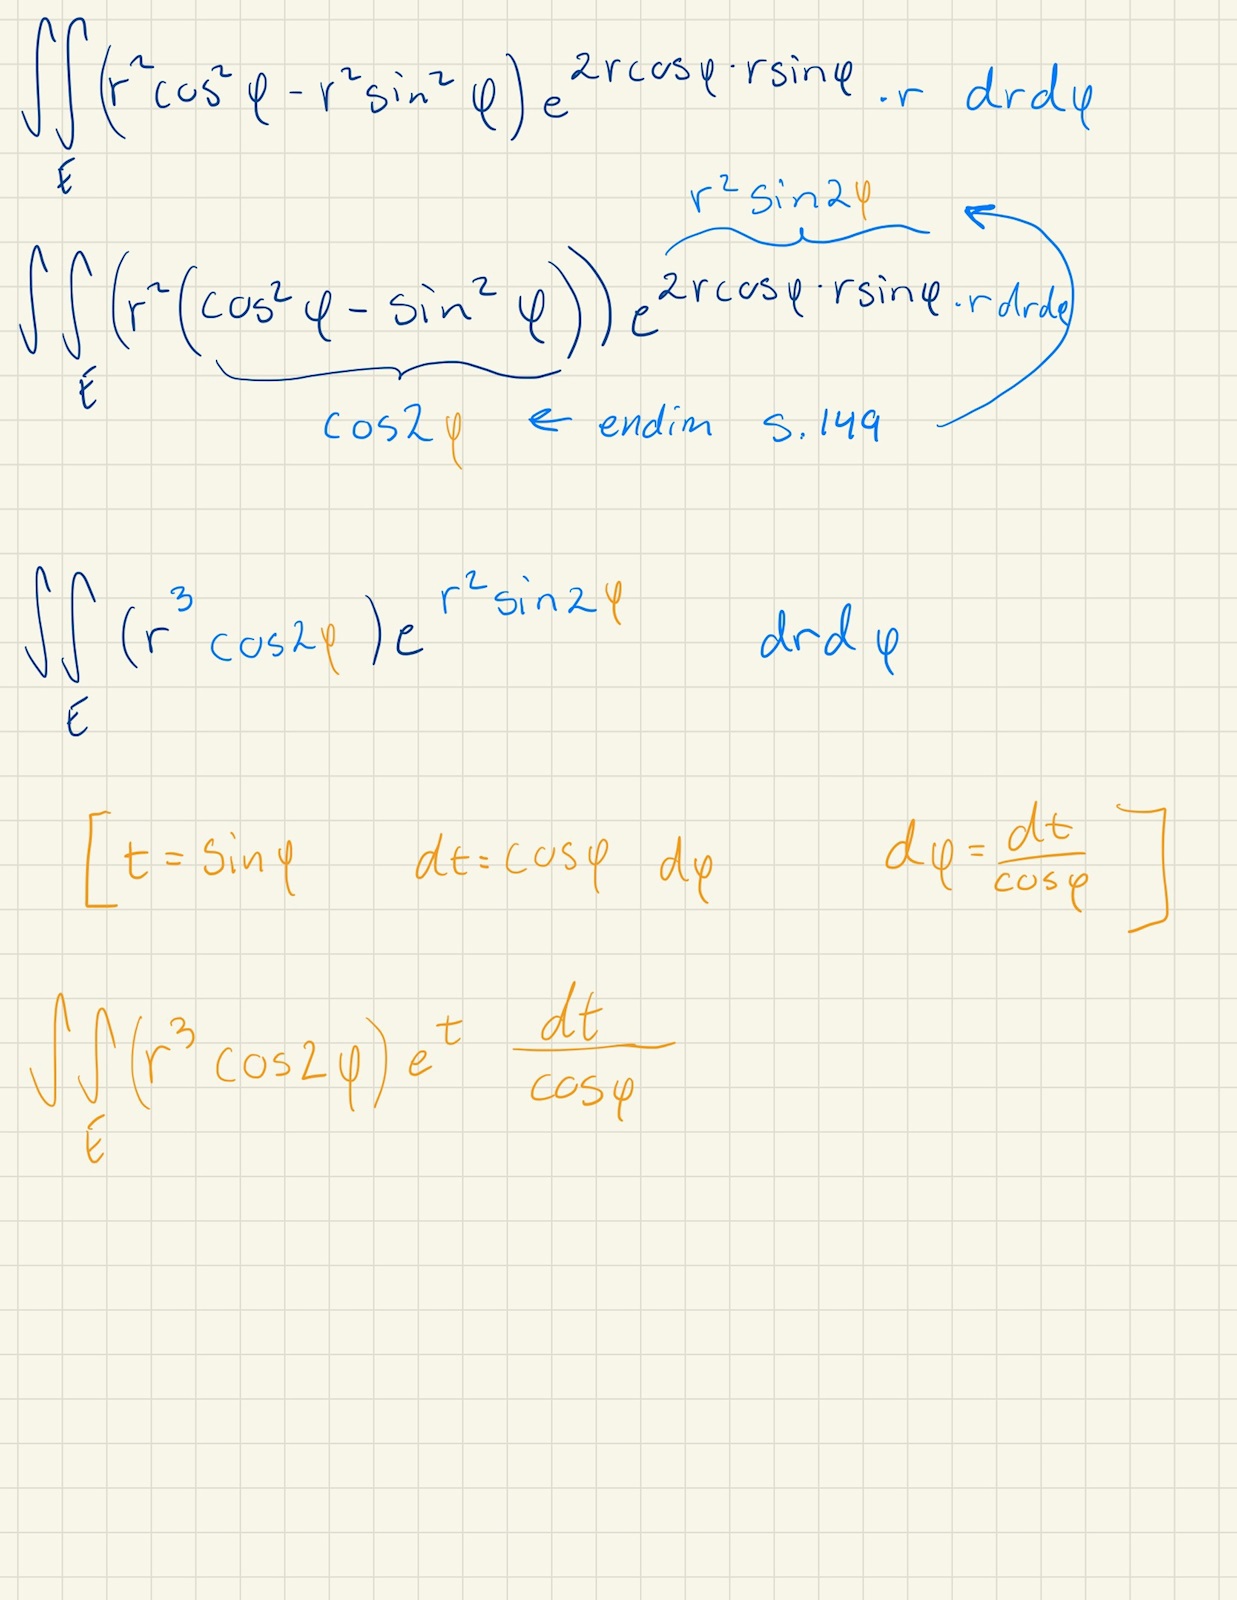 ∬_E (r² cos² φ - r² sin² φ) e^(2rcosφ · rsinφ) · r drdφ
r² sin2φ
∬_E (r² (cos² φ - sin² φ)) e^(2rcosφ · rsinφ) · r drdφ
cos2φ ← endim s.149
∬_E (r³ cos2φ) e^(r² sin2φ) drdφ
[ t = sinφ dt = cosφ dφ dφ = dt/cosφ ]
∬_E (r³ cos2φ) e^t dt/cosφ